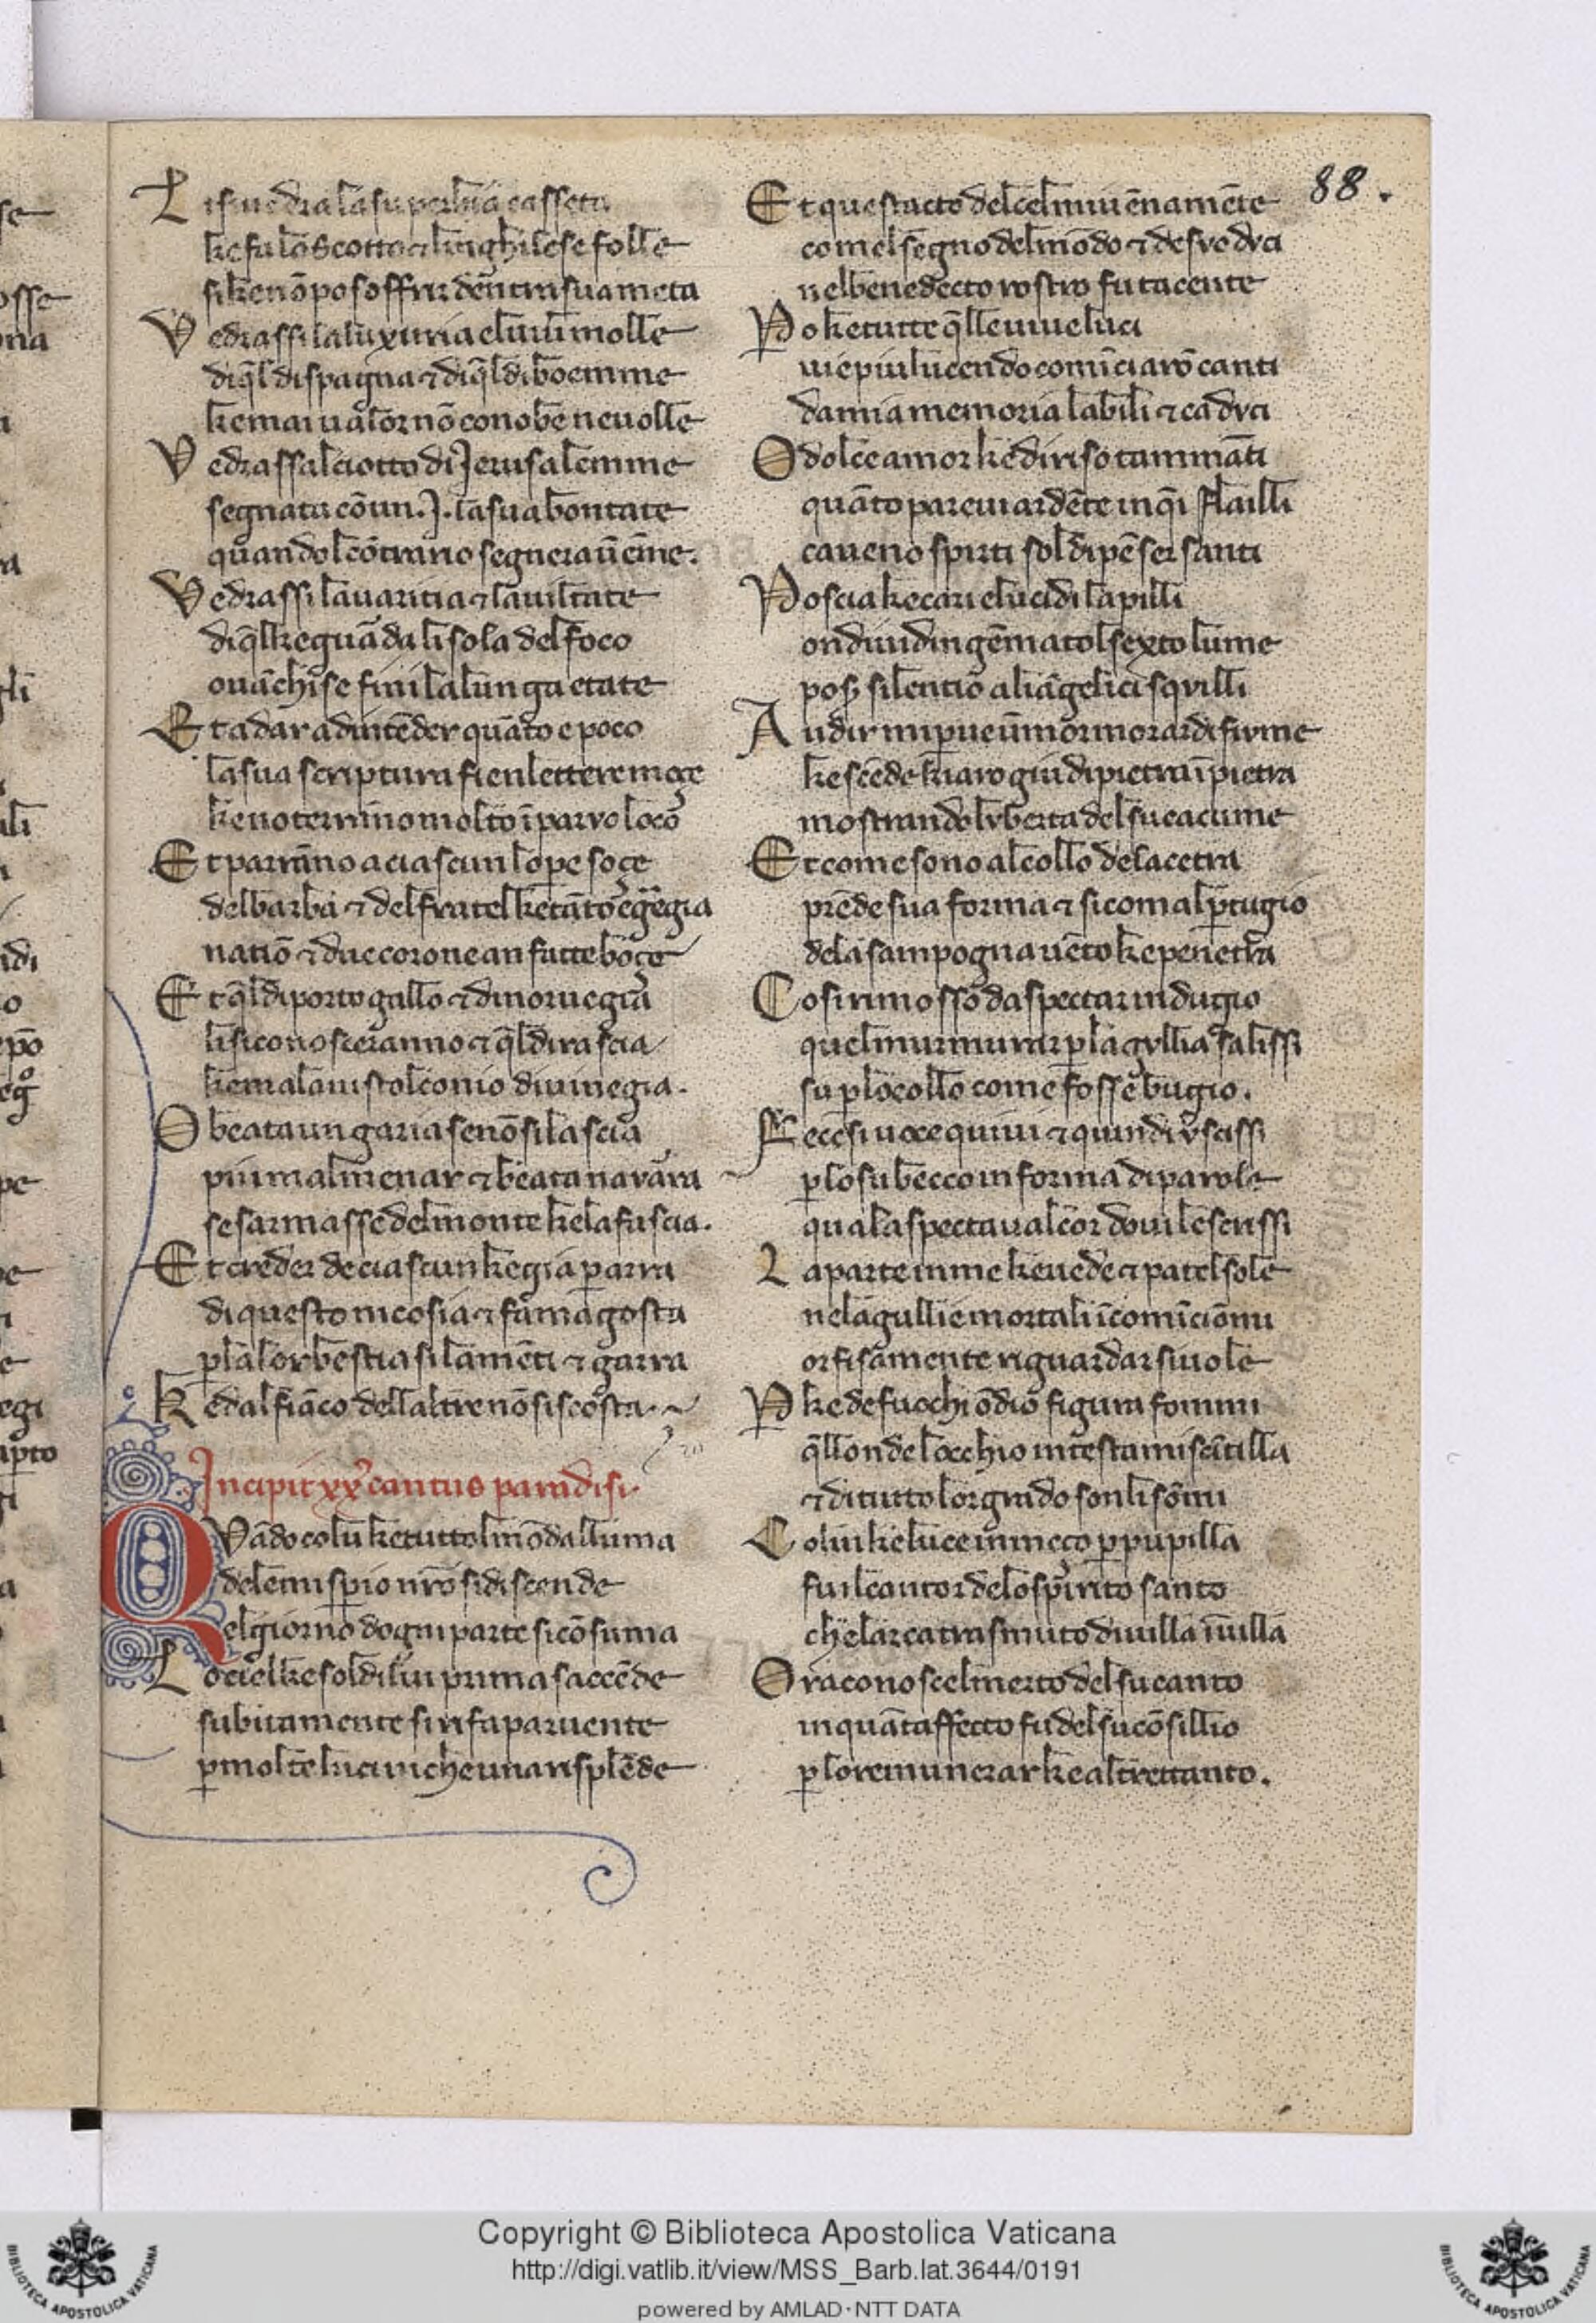 88.
Lisi uedra la superbia c asseta
ke fa lo Scotto ⁊ linghilese folle
si ke nō po soffrir dentra sua meta
Vedrassi la luxuria el uiuī molle
di q̄l di spagna ⁊ di q̄l di boemme
ke mai ualor nō conobe ne uolle
Vedrassal ciotto di Jerusalemme
segnata cō un .J. la sua bontate
quandol cōtrario segnera ū ēme.
Vedrassi lauaritia ⁊ la uiltate
di q̄l ke guāda lisola del foco
ou āchise fini la lunga etate
Et a dar ad intēder quāto e poco
la sua scriptura fien lettere moçe
ke noterāno molto ī paruo loco
Et parrāno a ciascun lope soçe
del barba ⁊ del fratel ke tāto egregia
natiō ⁊ due corone an fatte boçe
Et q̄l di portogallo ⁊ di noruegia
li si conosceranno ⁊ q̄l di rascia
ke mala uisto l conio di uinegia.
O beata ungaria se nō si lascia
piu mal menar ⁊ beata nauarra
se sarmasse del monte ke la fascia.
Et creder de ciascun ke gia p̱ arra
di questo nicosia ⁊ famagosta
p̱ la lor bestia si lamēti ⁊ garra
Ke dal fiāco dellaltre nō si scosta.
Incipit xx cantus paradisi.
QVādo colui ke tutto l mōdo alluma
de lemisp̱io nr̄o si discende
el giorno dogni parte si cōsuma
Lo ciel ke sol di lui prima saccēde
subitamente si rifa paruente
p̱ molte luci in che una risplēde
Et questacto del ciel mi uēne a mēte
comel segno del mōdo ⁊ de suo duci
nel benedecto rostro fu tacente
Po ke tutte q̄lle uiue luci
uie piu lucendo comīciarō canti
da mia memoria labili ⁊ caduci
O dolce amor ke di riso tammāti
quāto pareui ardēte in q̄i flailli
caueno spirti sol di pēser santi
Poscia ke cari e lucidi lapilli
ondi uidi ngēmato l sexto lume
posȝ silentio ali āgelici squilli
Audir mi p̱ue ū mormorar di fiume
ke scēde kiaro giu di pietra ī pietra
mostrando lubertà del su cacume
Et come sono al collo dela cetra
prēde sua forma ⁊ si com al p̱tugio
dela sampogna uēto ke penetra
Cosi rimosso daspectar indugio
quel murmurar p̱ la gullia salissi
su p̱ lo collo come fosse bugio.
Fecesi uoce quiui ⁊ quindi uscissi
p̱ lo su becco in forma di parole
qua laspectaua l cor dou i le scrissi
La parte in me ke uede ⁊ pate l sole
nelagullie mortali īcomīciōmi
or fisamente riguardar si uole
P̱ke de fuochi ōdio figura fommi
q̄lli onde loccħio in testa mi scītilla
⁊ di tutti lor grado son li sōmi
Colui ke luce in meço p̱ pupilla
fu il cantor de lo spirito santo
che larca trasmuto di uilla ī uilla
Ora conosce l merto del su canto
in quāta affecto fu del su cōsillio
p̱ lo remunerar ke altrettanto.
Copyright © Biblioteca Apostolica Vaticana
http://digi.vatlib.it/view/MSS_Barb.lat.3644/0191
powered by AMLAD·NTT DATA